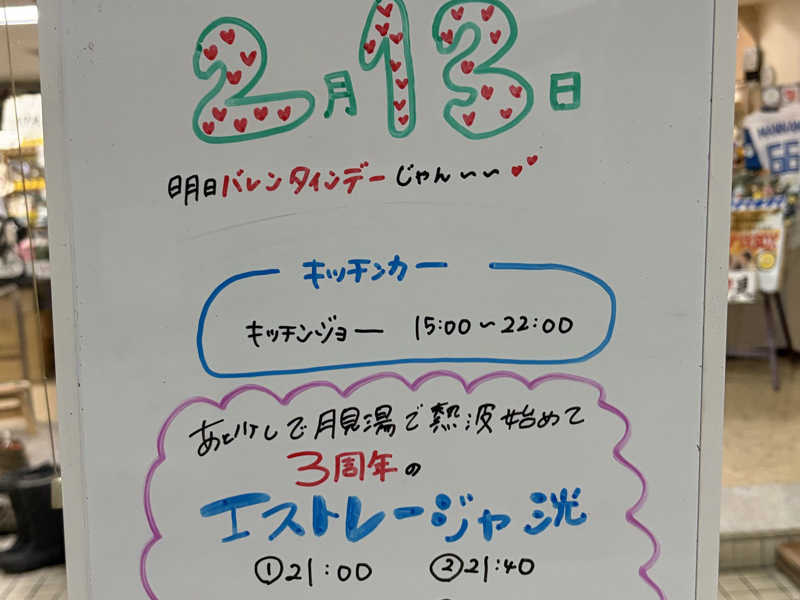 2月13日
明日バレンタインデーじゃん〜〜
キッチンカー
キッチンジョー 15:00〜22:00
あと少しで月見湯で熱波始めて
3周年の
エストレージャ洸
①21:00 ②21:40
66